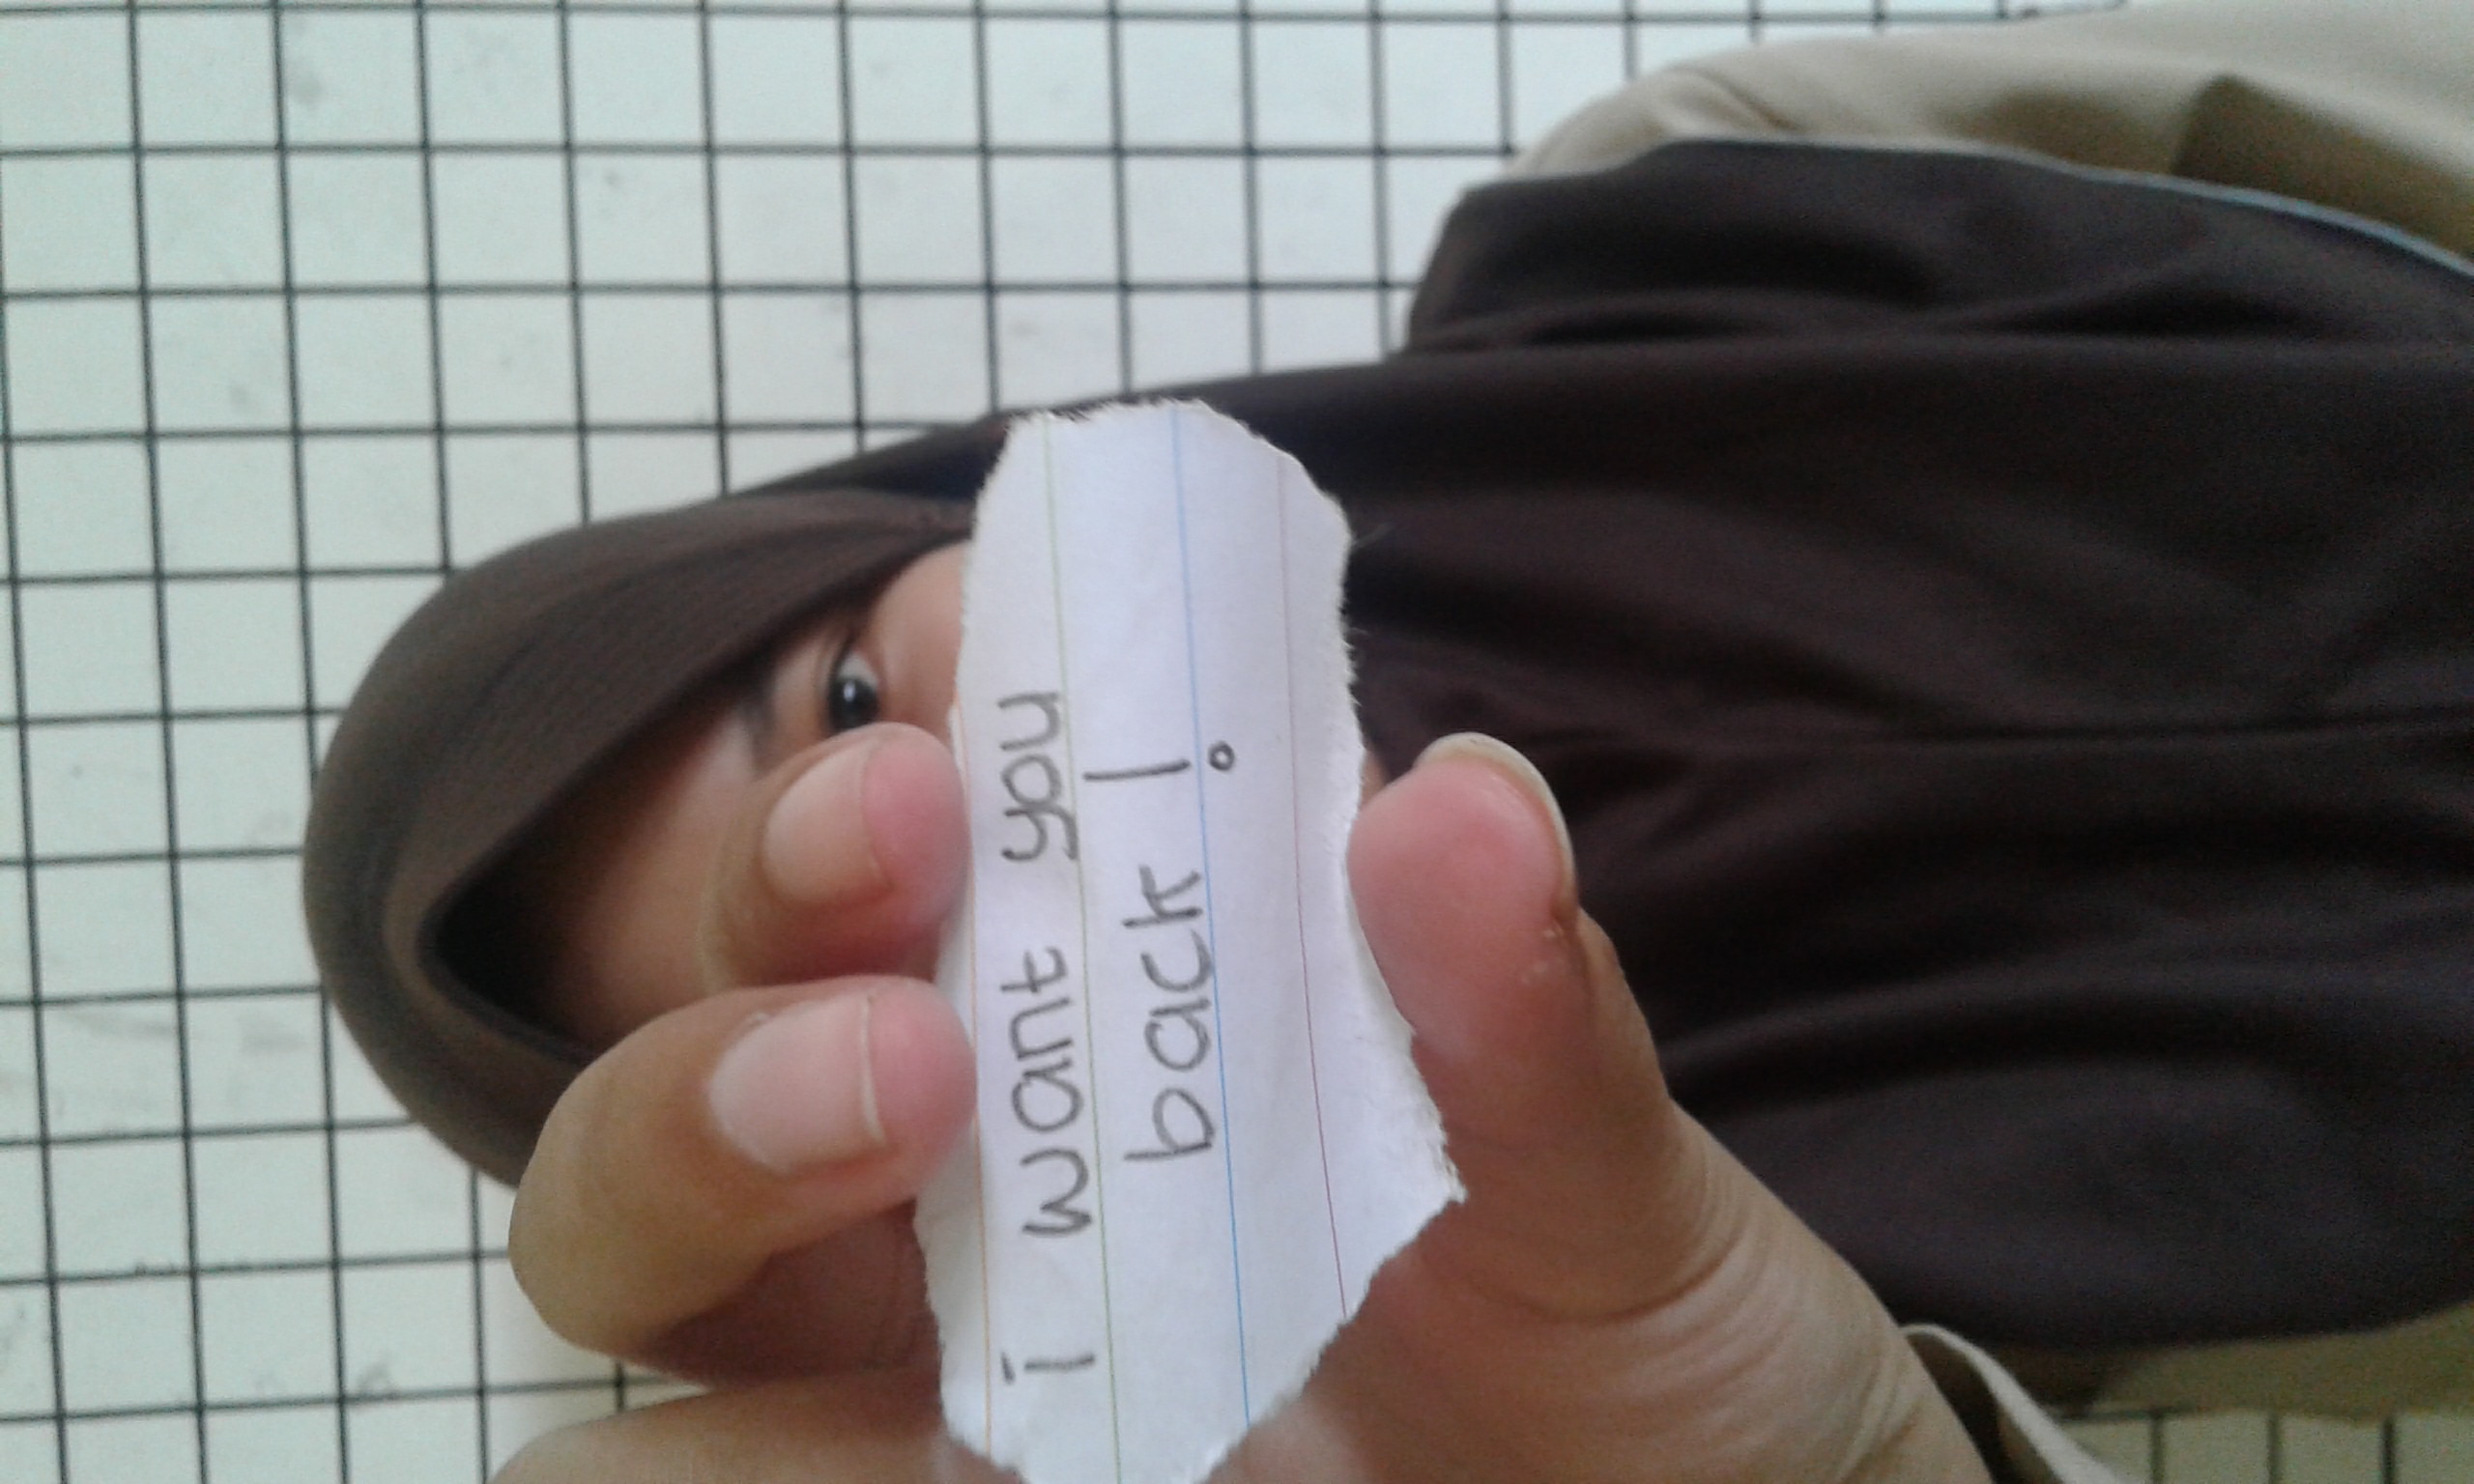 i want you
back !